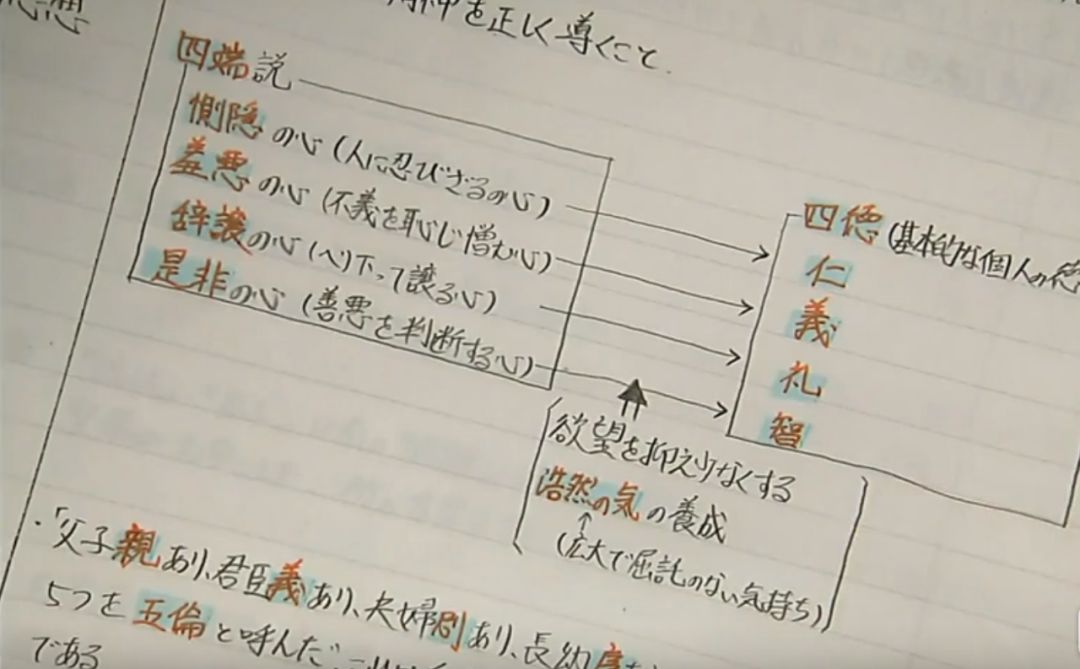 を正しく導くこと.
四端説
惻隠の心(人に忍びざるの心)
羞悪の心(不義を恥じ憎む心)
辞譲の心(へり下って譲る心)
是非の心(善悪を判断する心)
四徳(基本的な個人の徳
仁
義
礼
智
欲望を抑え少なくする
浩然の気の養成
(広大で屈託のない気持ち)
・「父子親あり、君臣義あり、夫婦別あり、長幼序
5つを五倫と呼んだ
である